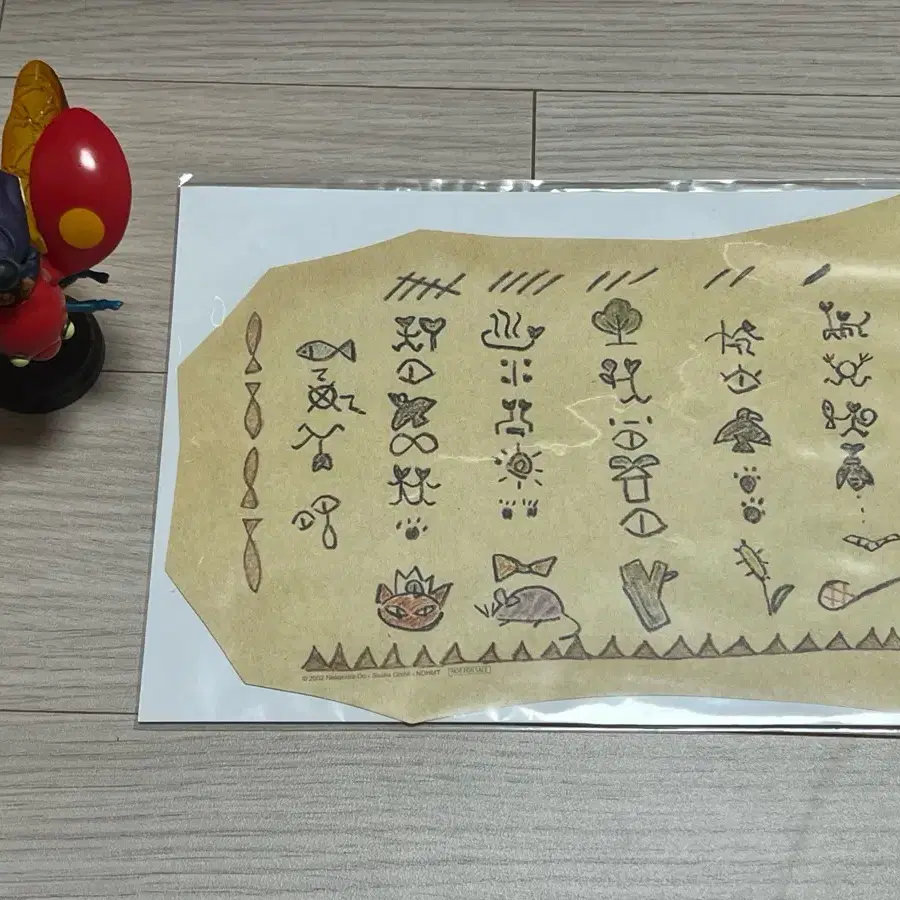 © 2002 Nekonote Do - Studio Ghibli - NDHMT NOT FOR SALE